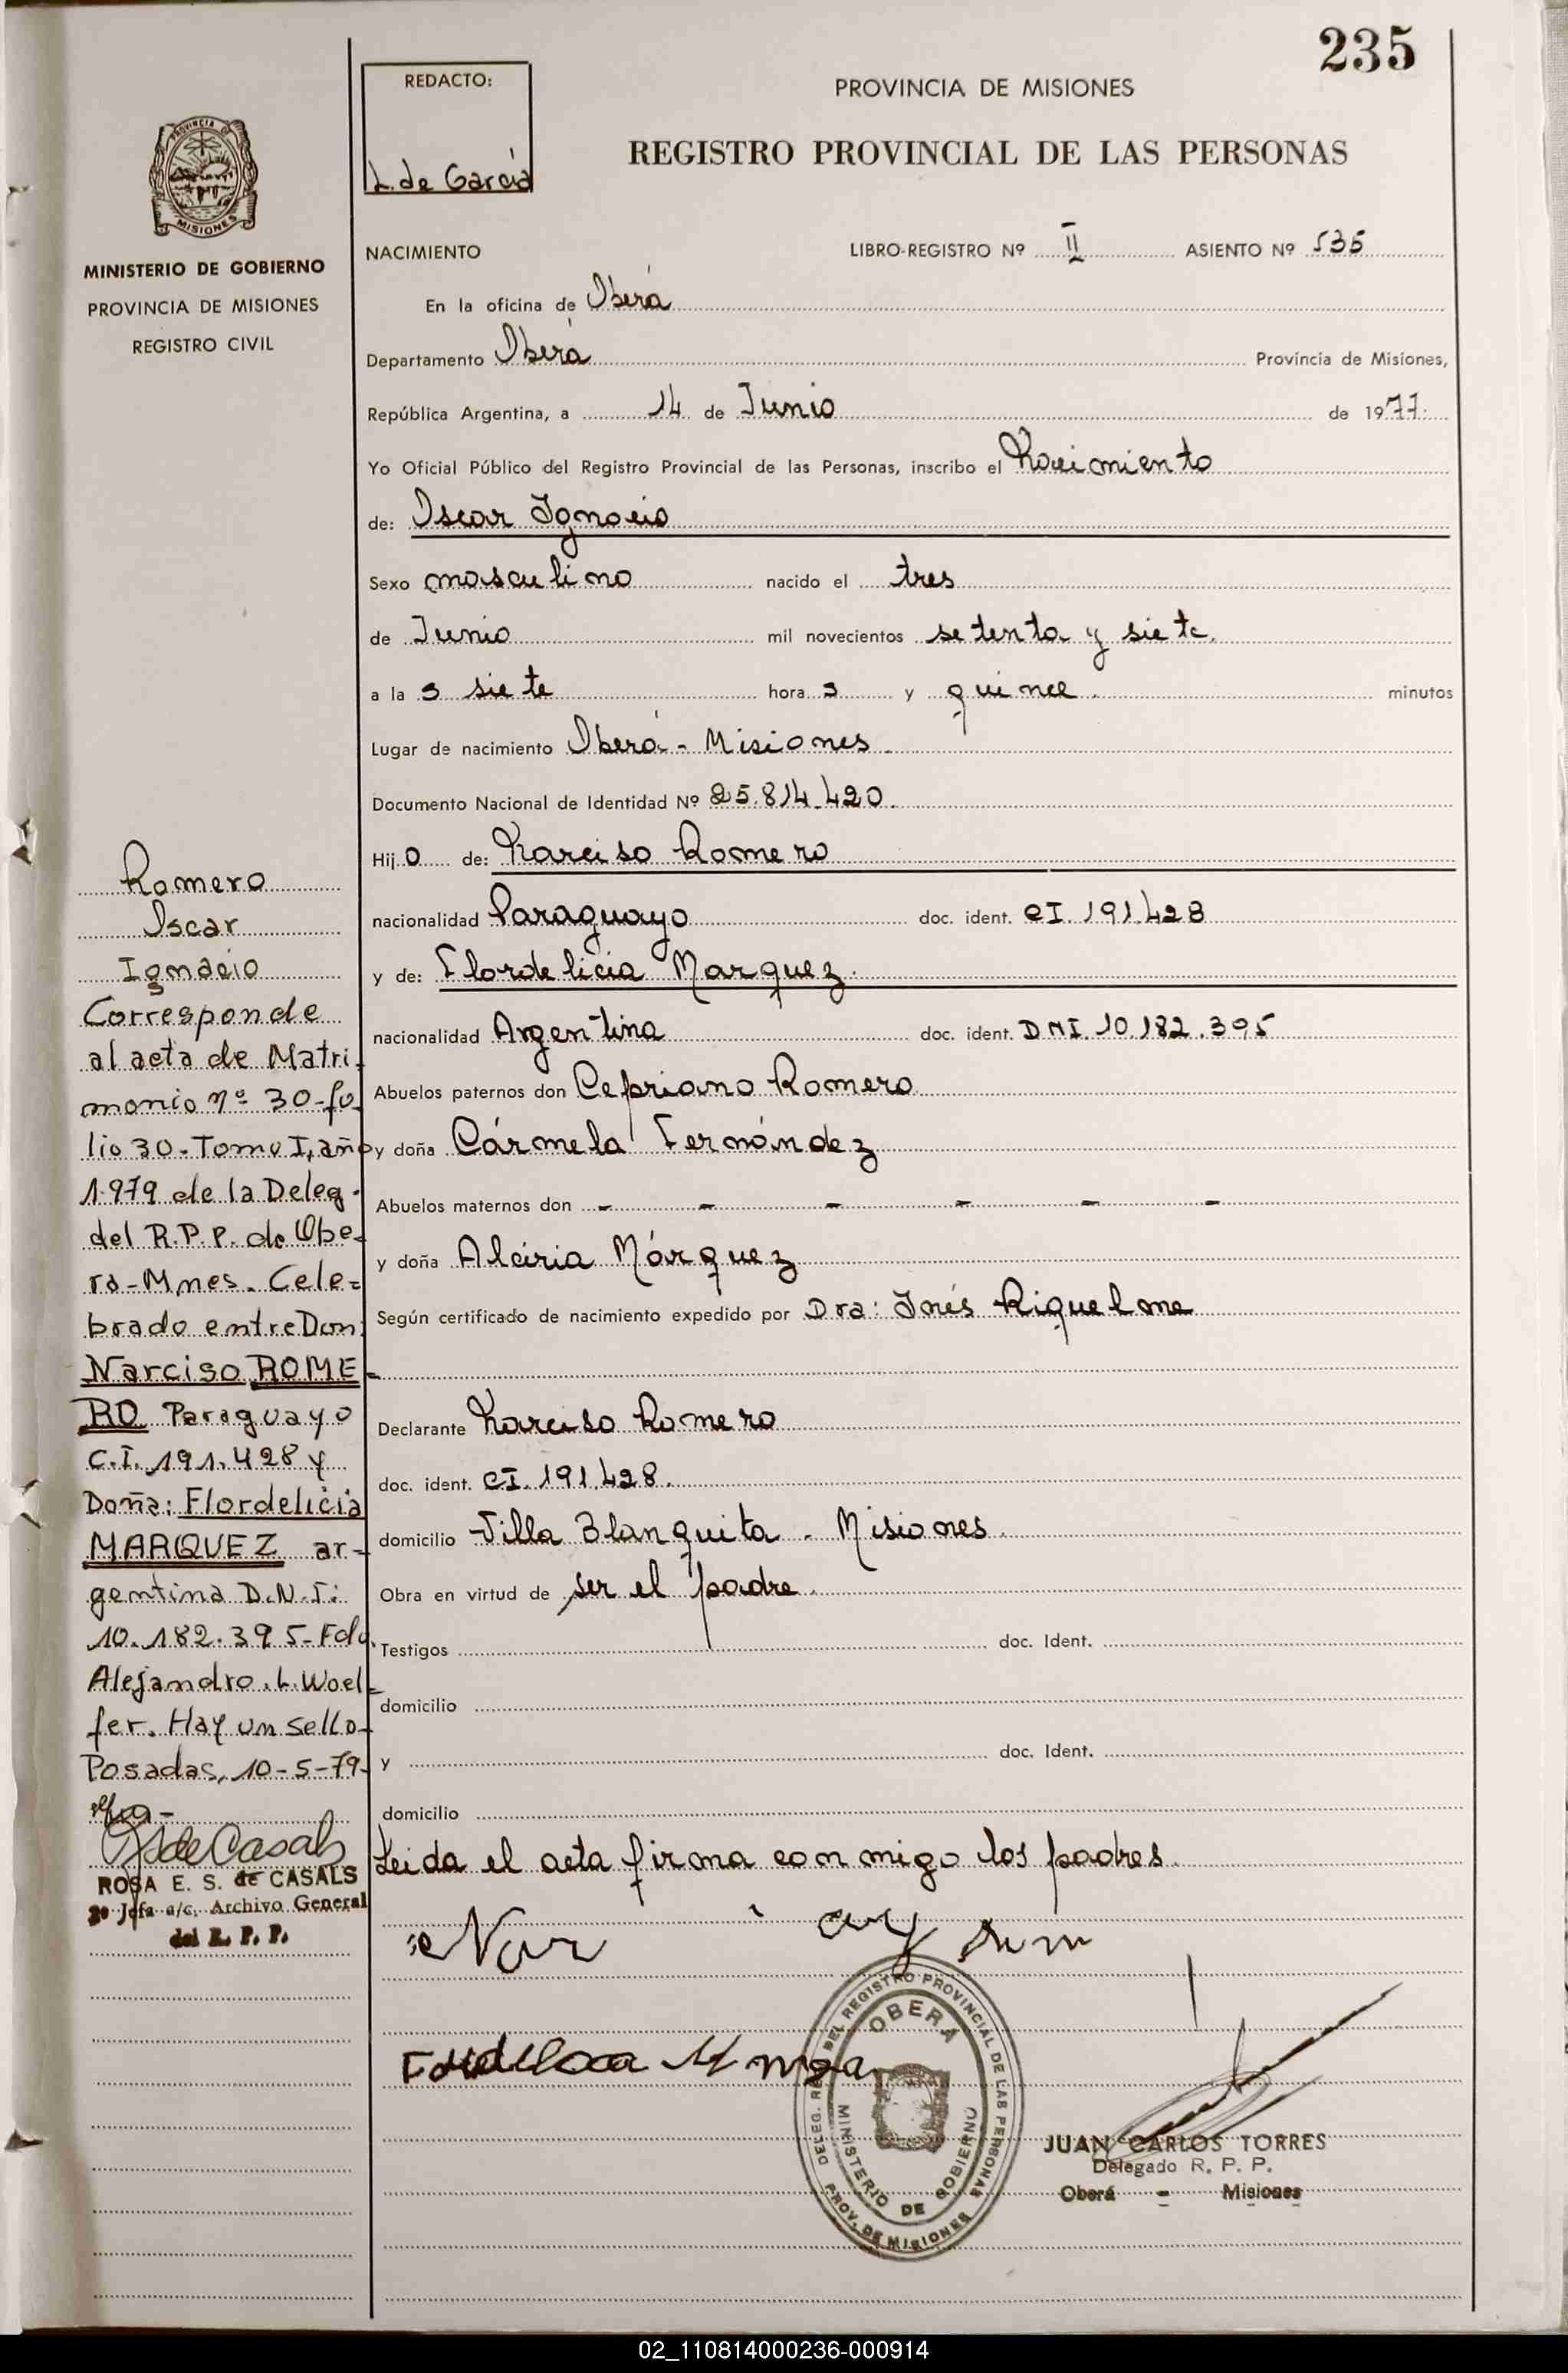 235
REDACTO:
L. de García
PROVINCIA DE MISIONES
REGISTRO PROVINCIAL DE LAS PERSONAS
PROVINCIA DE
MISIONES
MINISTERIO DE GOBIERNO
PROVINCIA DE MISIONES
REGISTRO CIVIL
NACIMIENTO LIBRO-REGISTRO Nº II ASIENTO Nº 535
En la oficina de Oberá
Departamento Oberá Provincia de Misiones,
República Argentina, a 14 de Junio de 1977.
Yo Oficial Público del Registro Provincial de las Personas, inscribo el Nacimiento
de: Oscar Ignacio
Sexo masculino nacido el tres
de Junio mil novecientos setenta y siete.
a la s siete hora s y quince. minutos
Lugar de nacimiento Oberá - Misiones.
Documento Nacional de Identidad Nº 25.814.420.
Hij o de: Narciso Romero
nacionalidad Paraguayo doc. ident. CI. 191.428
y de: Flordelicia Marquez.
nacionalidad Argentina doc. ident. DNI. 10.182.395
Abuelos paternos don Cepriano Romero
y doña Cármela Fernández
Abuelos maternos don - - - - - -
y doña Alciria Márquez
Según certificado de nacimiento expedido por Dra: Inés Riquelme
Declarante Narciso Romero
doc. ident. CI. 191.428.
domicilio Villa Blanquita - Misiones.
Obra en virtud de ser el padre.
Testigos doc. Ident.
domicilio
y doc. Ident.
domicilio
Leida el acta firma conmigo los padres.
Romero
Oscar
Ignacio
Corresponde
al acta de Matri-
monio nº 30-fo-
lio 30-Tomo I, año
1.979 de la Deleg.
del R.P.P. de Obe-
rá-Mnes. Cele=
brado entre Don:
Narciso ROME=
RO Paraguayo
C.I. 191.428 y
Doña: Flordelicia
MARQUEZ ar-
gentina D.N.I:
10.182.395-Fdo.
Alejandro.L.Woel=
fer. Hay un sello-
Posadas, 10-5-79-
ROSA E. S. de CASALS
2º Jefa a/c. Archivo General
del R. P. P.
DELEG. DEL REGISTRO PROVINCIAL DE LAS PERSONAS
OBERA
MINISTERIO DE GOBIERNO
PROV. DE MISIONES
JUAN CARLOS TORRES
Delegado R. P. P.
Oberá - Misiones
02_110814000236-000914